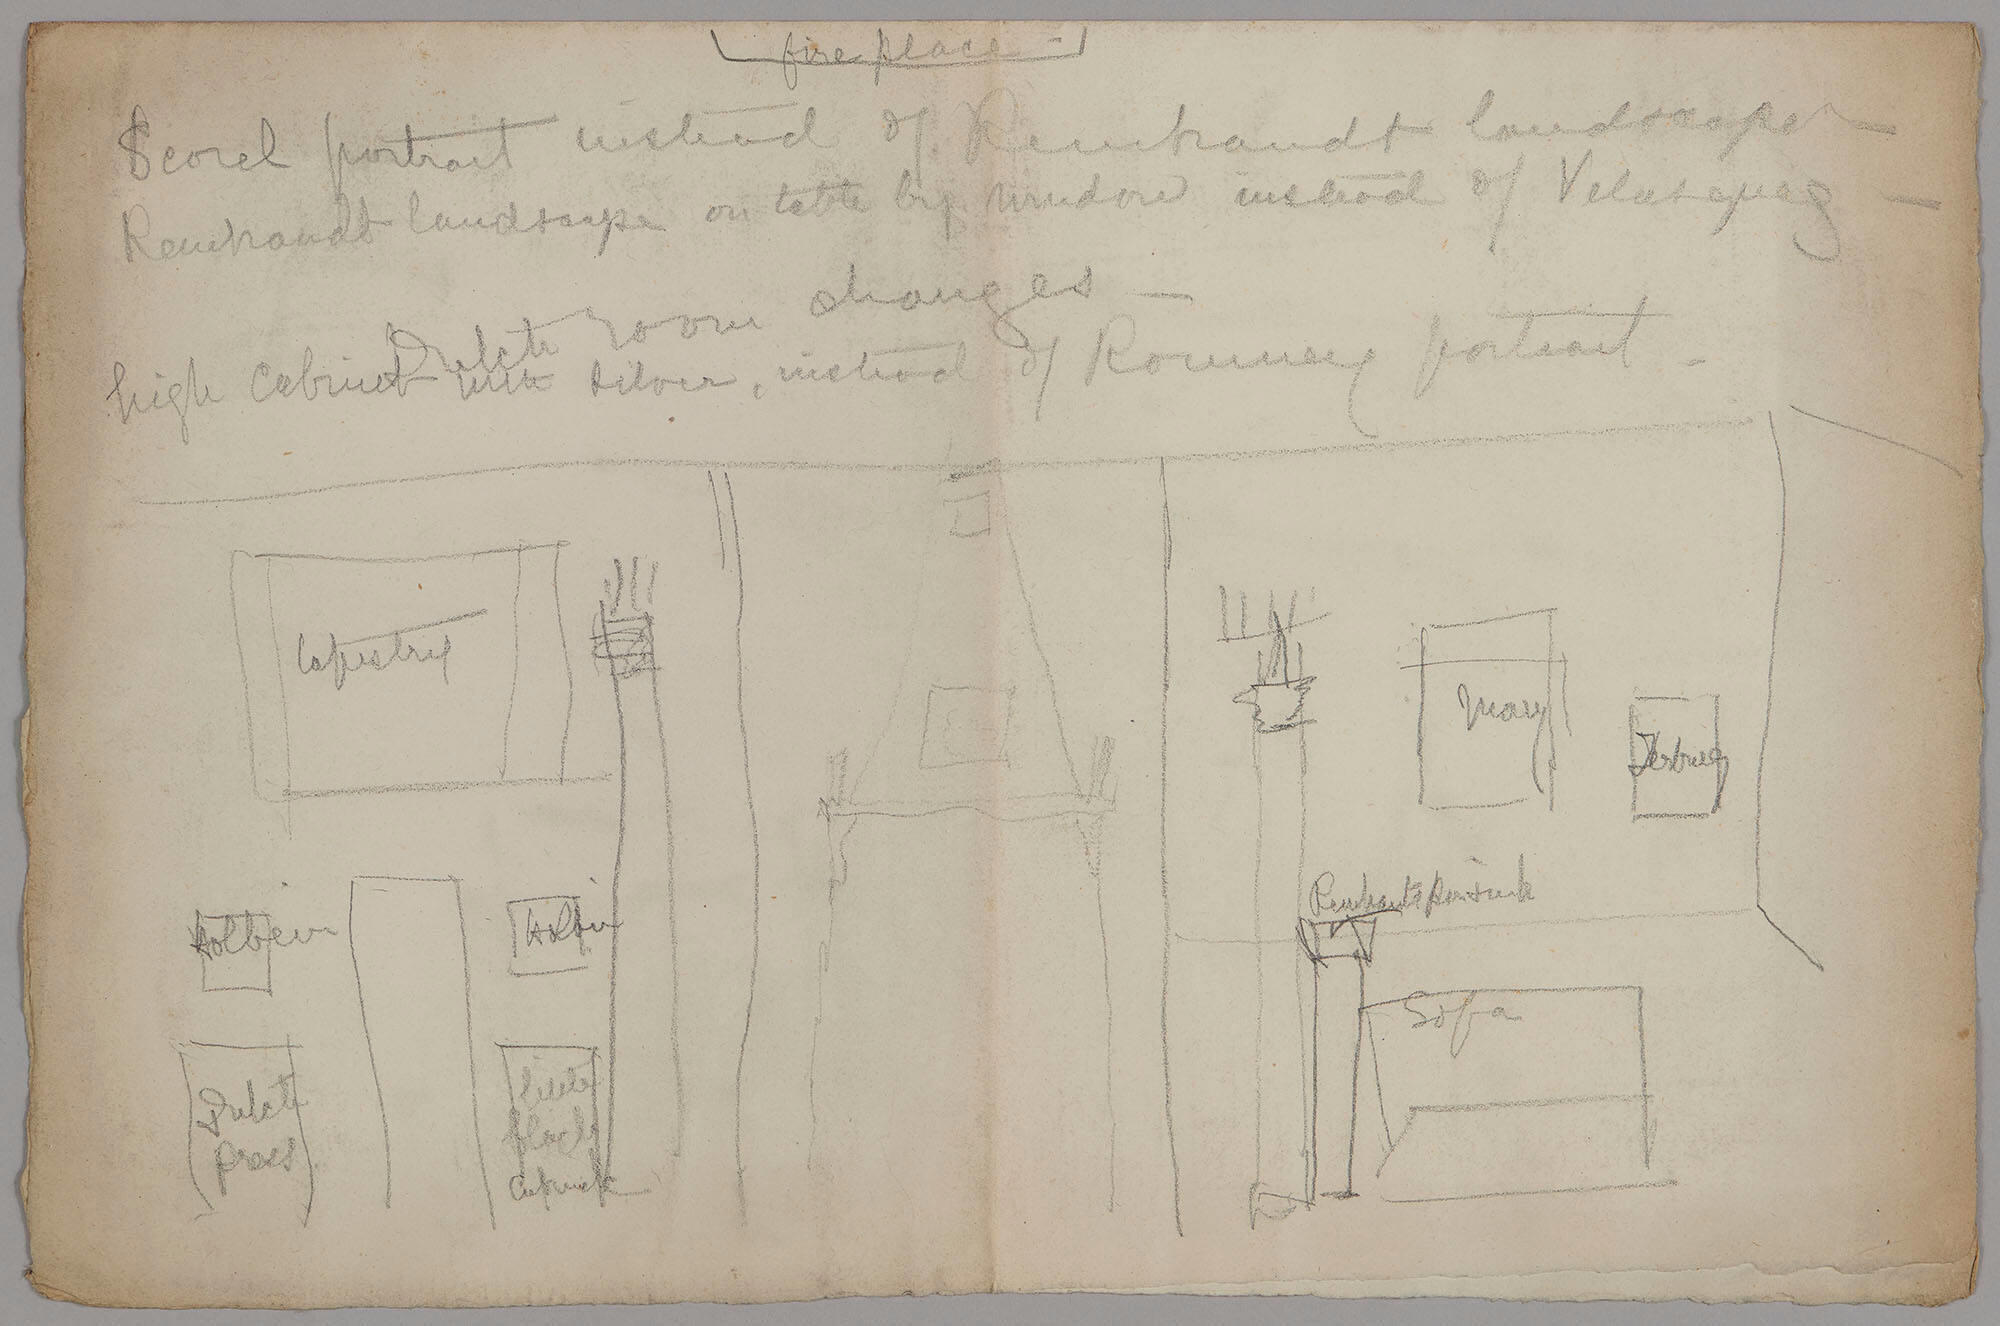 fireplace -
Scorel portrait instead of Rembrandt landscape —
Rembrandt landscape on table by window instead of Velasquez —
Dutch room changes —
high cabinet with silver, instead of Romney portrait -
tapestry
Mary
Terburg
Rembrandt's
Holbein
Holbein
Sofa
Dutch
press
little
black
cabinet